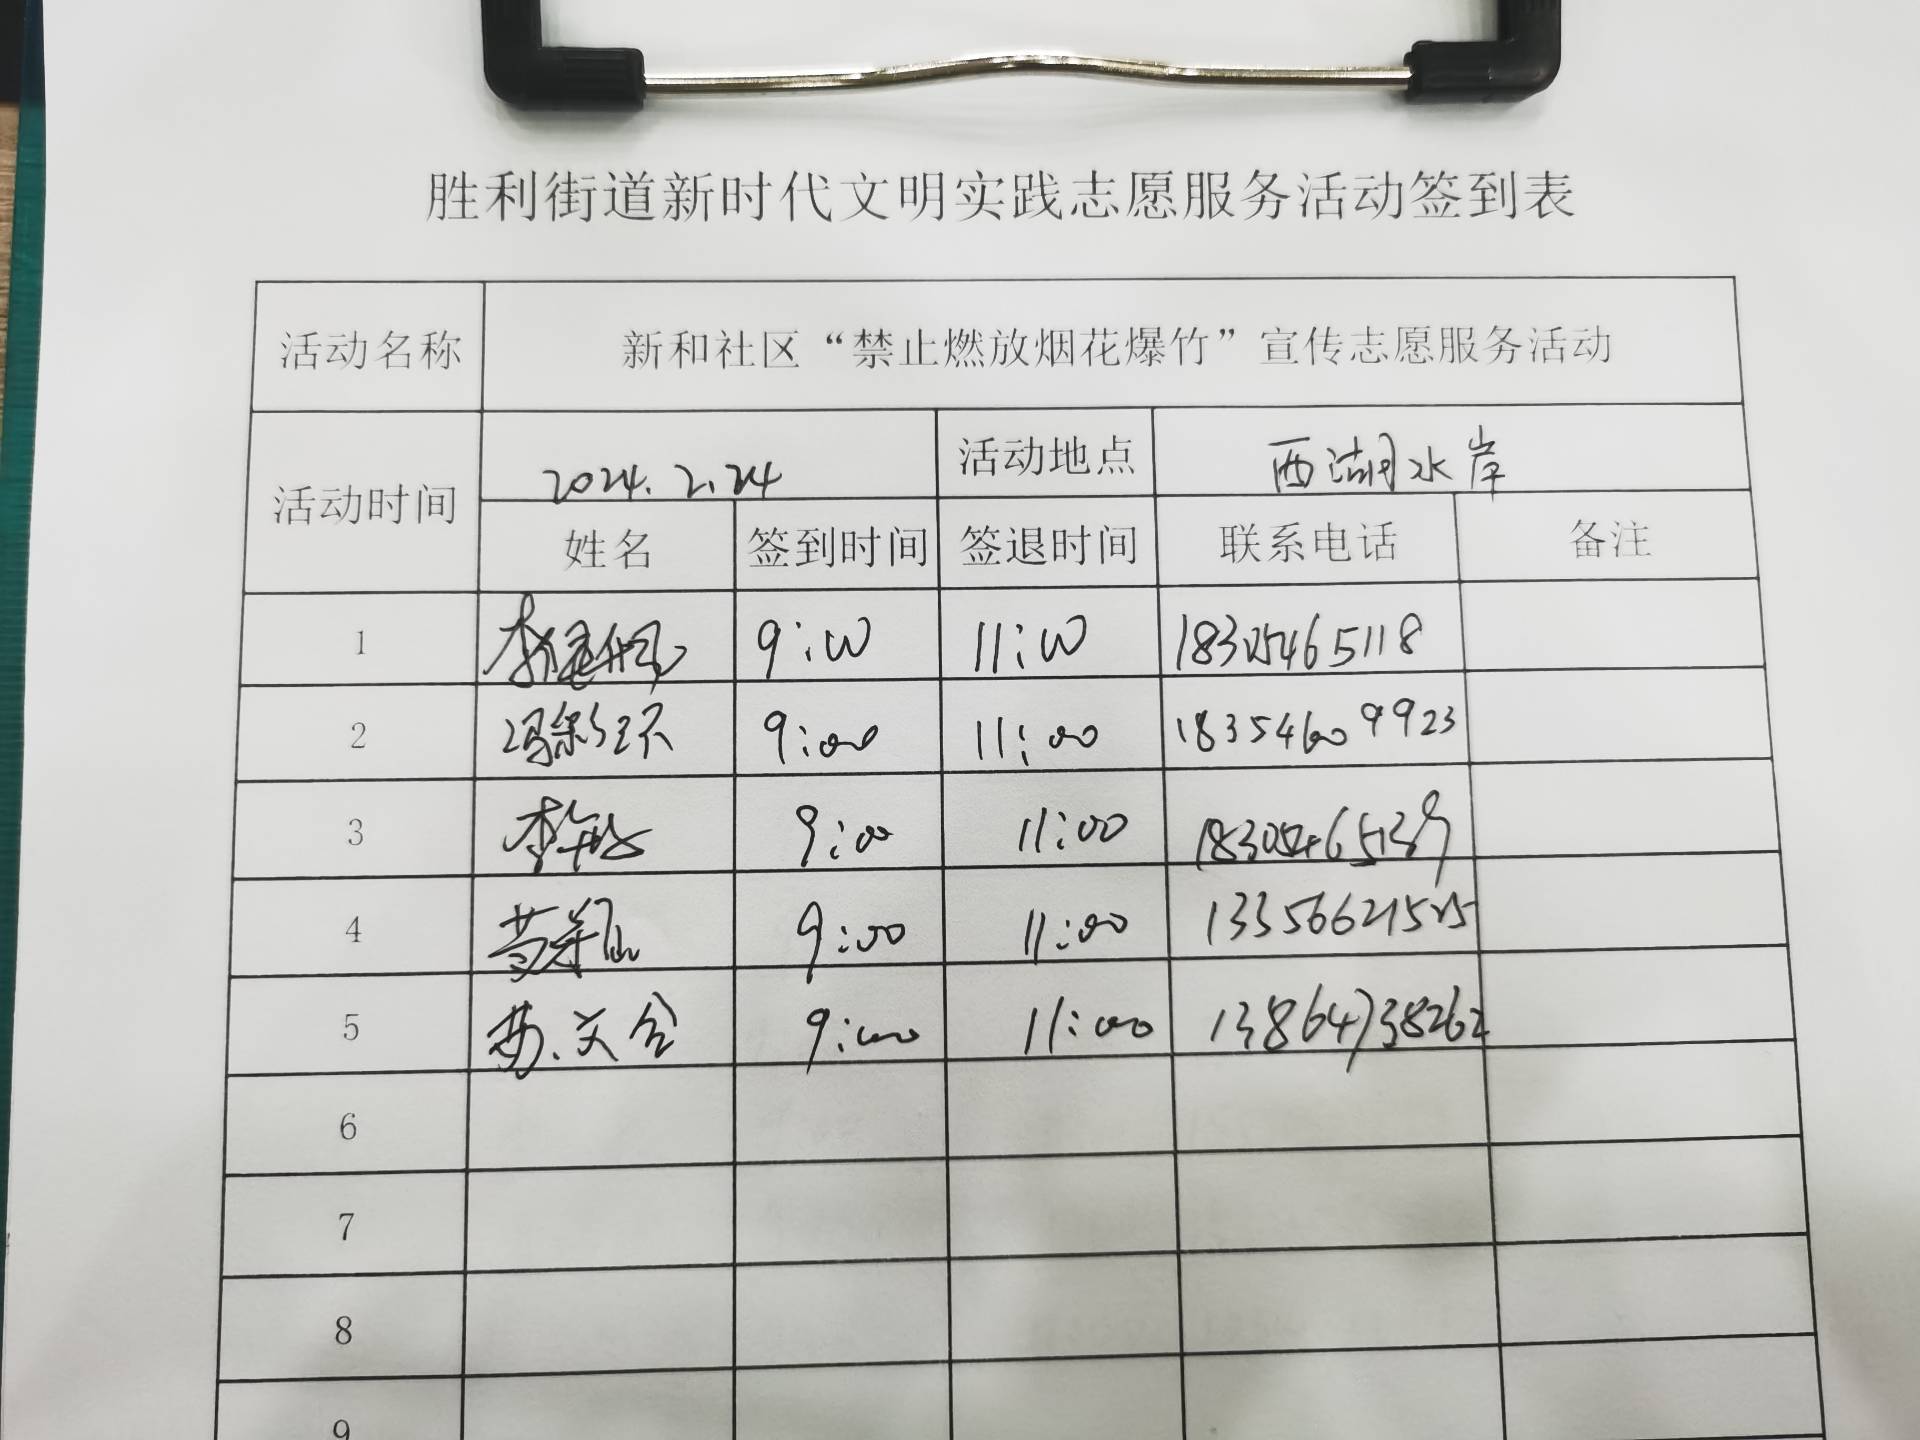 胜利街道新时代文明实践志愿服务活动签到表
活动名称 新和社区“禁止燃放烟花爆竹”宣传志愿服务活动
活动时间 2024.2.24 活动地点 西湖水岸
姓名 签到时间 签退时间 联系电话 备注
1 9:00 11:00 18305465118
2 9:00 11:00 18354609923
3 9:00 11:00 18305465139
4 9:00 11:00 13356621525
5 9:00 11:00 13864738262
6
7
8
9